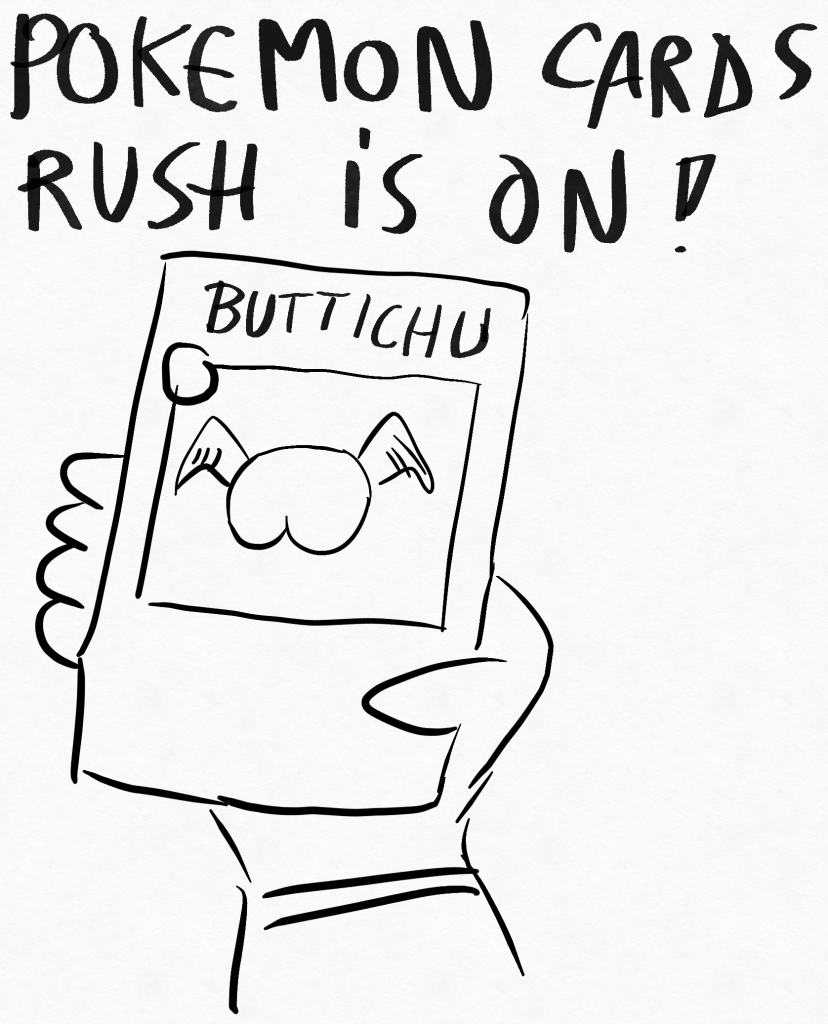 POKEMON CARDS
RUSH iS ON!
BUTTICHU